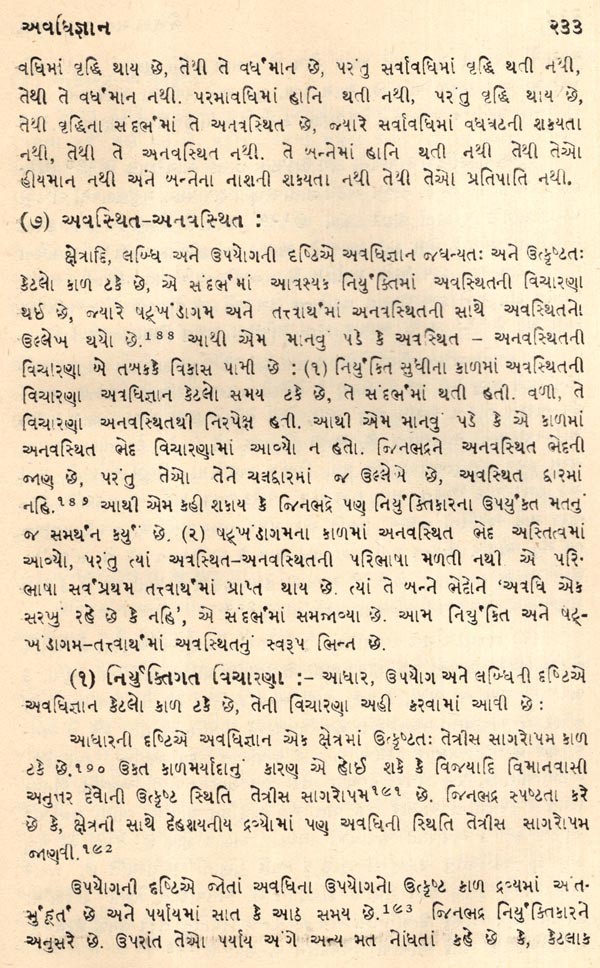 અવધિજ્ઞાન ૨૩૩
વધિમાં વૃદ્ધિ થાય છે, તેથી તે વર્ધમાન છે, પરંતુ સર્વાવધિમાં વૃદ્ધિ થતી નથી,
તેથી તે વર્ધમાન નથી. પરમાવધિમાં હાનિ થતી નથી, પરંતુ વૃદ્ધિ થાય છે,
તેથી વૃદ્ધિના સંદર્ભમાં તે અનવસ્થિત છે, જ્યારે સર્વાવધિમાં વધઘટની શકયતા
નથી, તેથી તે અનવસ્થિત નથી. તે બન્નેમાં હાનિ થતી નથી તેથી તેઓ
હીયમાન નથી અને બન્નેના નાશની શકયતા નથી તેથી તેઓ પ્રતિપાતિ નથી.
(૭) અવસ્થિત-અનવસ્થિત :
ક્ષેત્રાદિ, લબ્ધિ અને ઉપયોગની દૃષ્ટિએ અવધિજ્ઞાન જઘન્યતઃ અને ઉત્કૃષ્ટતઃ
કેટલો કાળ ટકે છે, એ સંદર્ભમાં આવશ્યક નિર્યુક્તિમાં અવસ્થિતની વિચારણા
થઈ છે, જ્યારે ષટ્ખંડાગમ અને તત્ત્વાર્થમાં અનવસ્થિતની સાથે અવસ્થિતનો
ઉલ્લેખ થયો છે.૧૮૮ આથી એમ માનવું પડે કે અવસ્થિત – અનવસ્થિતની
વિચારણા બે તબક્કે વિકાસ પામી છે : (૧) નિર્યુક્તિ સુધીના કાળમાં અવસ્થિતની
વિચારણા અવધિજ્ઞાન કેટલો સમય ટકે છે, તે સંદર્ભમાં થતી હતી. વળી, તે
વિચારણા અનવસ્થિતથી નિરપેક્ષ હતી. આથી એમ માનવું પડે કે એ કાળમાં
અનવસ્થિત ભેદ વિચારણામાં આવ્યો ન હતો. જિનભદ્રને અનવસ્થિત ભેદની
જાણ છે, પરંતુ તેઓ તેને ચલદ્વારમાં જ ઉલ્લેખે છે, અવસ્થિત દ્વારમાં
નહિ.૧૮૯ આથી એમ કહી શકાય કે જિનભદ્રે પણ નિર્યુક્તિકારના ઉપર્યુક્ત મતનું
જ સમર્થન કર્યું છે. (૨) ષટ્ખંડાગમના કાળમાં અનવસ્થિત ભેદ અસ્તિત્વમાં
આવ્યો, પરંતુ ત્યાં અવસ્થિત-અનવસ્થિતની પરિભાષા મળતી નથી એ પરિ-
ભાષા સર્વપ્રથમ તત્ત્વાર્થમાં પ્રાપ્ત થાય છે. ત્યાં તે બન્ને ભેદોને ‘અવધિ એક
સરખું રહે છે કે નહિ’, એ સંદર્ભમાં સમજાવ્યા છે. આમ નિર્યુક્તિ અને ષટ્-
ખંડાગમ-તત્ત્વાર્થમાં અવસ્થિતનું સ્વરૂપ ભિન્ન છે.
(૧) નિર્યુક્તિગત વિચારણા :- આધાર, ઉપયોગ અને લબ્ધિની દૃષ્ટિએ
અવધિજ્ઞાન કેટલો કાળ ટકે છે, તેની વિચારણા અહી કરવામાં આવી છે :
આધારની દૃષ્ટિએ અવધિજ્ઞાન એક ક્ષેત્રમાં ઉત્કૃષ્ટતઃ તેત્રીસ સાગરોપમ કાળ
ટકે છે.૧૯૦ ઉક્ત કાળમર્યાદાનું કારણ એ હોઈ શકે કે વિજયાદિ વિમાનવાસી
અનુત્તર દેવોની ઉત્કૃષ્ટ સ્થિતિ તેત્રીસ સાગરોપમ૧૯૧ છે. જિનભદ્ર સ્પષ્ટતા કરે
છે કે, ક્ષેત્રની સાથે દેહશયનીય દ્રવ્યોમાં પણ અવધિની સ્થિતિ તેત્રીસ સાગરોપમ
જાણવી.૧૯૨
ઉપયોગની દૃષ્ટિએ જોતાં અવધિના ઉપયોગનો ઉત્કૃષ્ટ કાળ દ્રવ્યમાં અંત-
ર્મુહૂર્ત છે અને પર્યાયમાં સાત કે આઠ સમય છે.૧૯૩ જિનભદ્ર નિર્યુક્તિકારને
અનુસરે છે. ઉપરાંત તેઓ પર્યાય અંગે અન્ય મત નોંધતાં કહે છે કે, કેટલાક